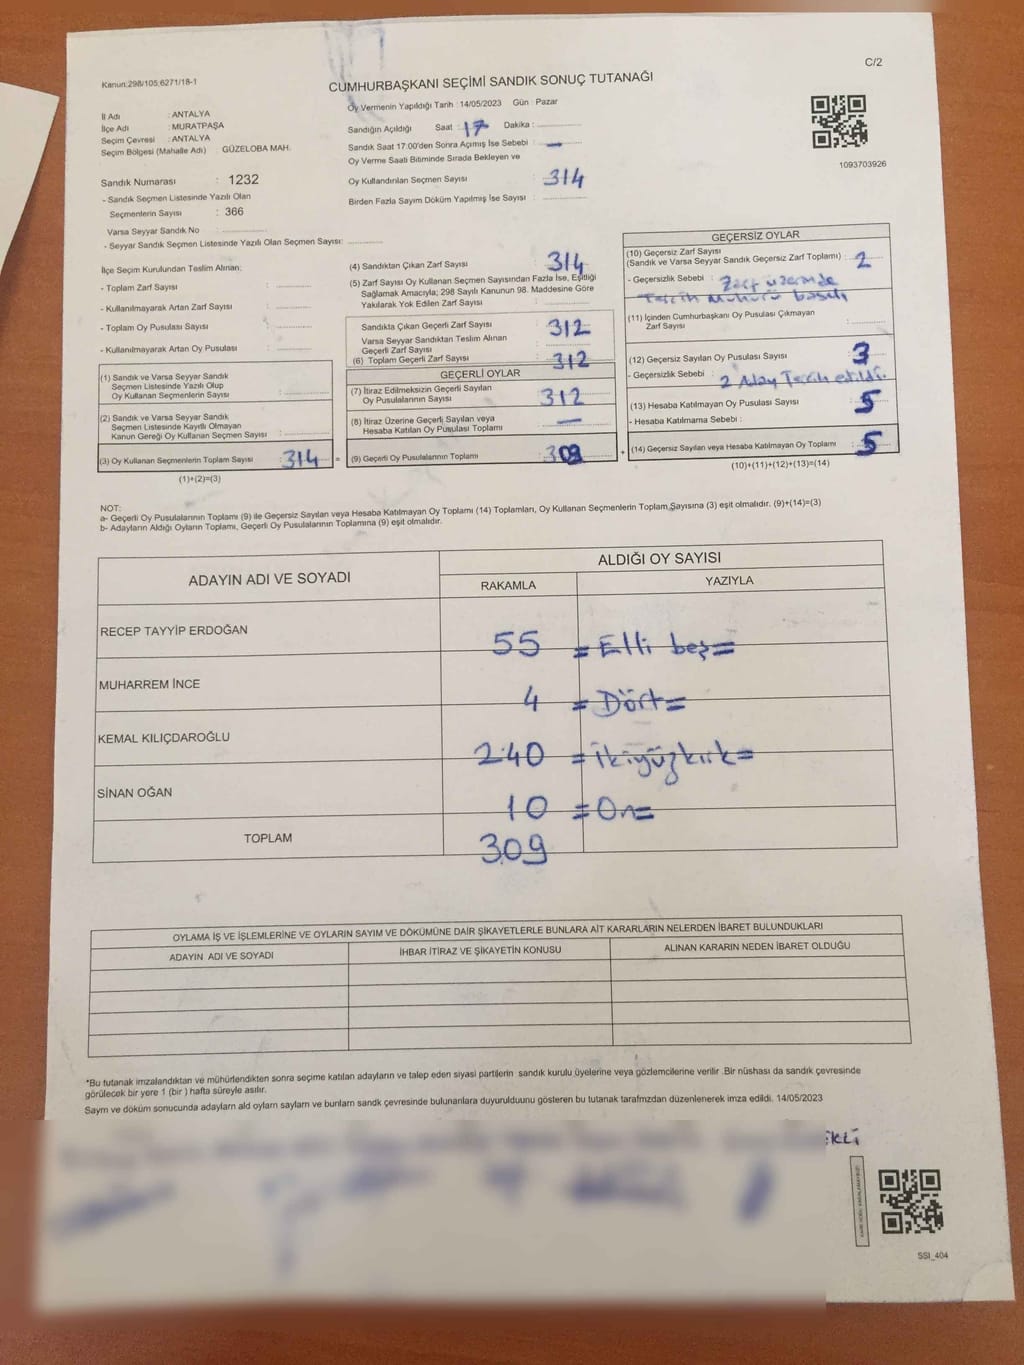 Kanun:298/105:6271/18-1
C/2
CUMHURBAŞKANI SEÇİMİ SANDIK SONUÇ TUTANAĞI
Oy Vermenin Yapıldığı Tarih : 14/05/2023 Gün : Pazar
İl Adı : ANTALYA
İlçe Adı : MURATPAŞA
Seçim Çevresi : ANTALYA
Seçim Bölgesi (Mahalle Adı) : GÜZELOBA MAH.
Sandığın Açıldığı Saat : 17 Dakika :
Sandık Saat 17:00'den Sonra Açılmış İse Sebebi : —
Oy Verme Saati Bitiminde Sırada Bekleyen ve
Oy Kullandırılan Seçmen Sayısı : 314
Birden Fazla Sayım Döküm Yapılmış İse Sayısı :
1093703926
Sandık Numarası : 1232
- Sandık Seçmen Listesinde Yazılı Olan
Seçmenlerin Sayısı : 366
Varsa Seyyar Sandık No :
- Seyyar Sandık Seçmen Listesinde Yazılı Olan Seçmen Sayısı:
İlçe Seçim Kurulundan Teslim Alınan;
- Toplam Zarf Sayısı :
- Kullanılmayarak Artan Zarf Sayısı :
- Toplam Oy Pusulası Sayısı :
- Kullanılmayarak Artan Oy Pusulası :
(1) Sandık ve Varsa Seyyar Sandık
Seçmen Listesinde Yazılı Olup
Oy Kullanan Seçmenlerin Sayısı :
(2) Sandık ve Varsa Seyyar Sandık
Seçmen Listesinde Kayıtlı Olmayan
Kanun Gereği Oy Kullanan Seçmen Sayısı :
(3) Oy Kullanan Seçmenlerin Toplam Sayısı : 314 =
(1)+(2)=(3)
(4) Sandıktan Çıkan Zarf Sayısı : 314
(5) Zarf Sayısı Oy Kullanan Seçmen Sayısından Fazla İse, Eşitliği
Sağlamak Amacıyla; 298 Sayılı Kanunun 98. Maddesine Göre
Yakılarak Yok Edilen Zarf Sayısı :
Sandıkta Çıkan Geçerli Zarf Sayısı : 312
Varsa Seyyar Sandıktan Teslim Alınan
Geçerli Zarf Sayısı :
(6) Toplam Geçerli Zarf Sayısı : 312
GEÇERLİ OYLAR
(7) İtiraz Edilmeksizin Geçerli Sayılan
Oy Pusulalarının Sayısı : 312
(8) İtiraz Üzerine Geçerli Sayılan veya
Hesaba Katılan Oy Pusulası Toplamı : —
(9) Geçerli Oy Pusulalarının Toplamı : 309 +
GEÇERSİZ OYLAR
(10) Geçersiz Zarf Sayısı
(Sandık ve Varsa Seyyar Sandık Geçersiz Zarf Toplamı) : 2
- Geçersizlik Sebebi : Zarf üzerinde
Tercih Mührü basılı
(11) İçinden Cumhurbaşkanı Oy Pusulası Çıkmayan
Zarf Sayısı :
(12) Geçersiz Sayılan Oy Pusulası Sayısı : 3
- Geçersizlik Sebebi : 2 Aday Tercih edildi.
(13) Hesaba Katılmayan Oy Pusulası Sayısı : 5
- Hesaba Katılmama Sebebi :
(14) Geçersiz Sayılan veya Hesaba Katılmayan Oy Toplamı : 5
(10)+(11)+(12)+(13)=(14)
NOT:
a- Geçerli Oy Pusulalarının Toplamı (9) ile Geçersiz Sayılan veya Hesaba Katılmayan Oy Toplamı (14) Toplamları, Oy Kullanan Seçmenlerin Toplam Sayısına (3) eşit olmalıdır. (9)+(14)=(3)
b- Adayların Aldığı Oyların Toplamı, Geçerli Oy Pusulalarının Toplamına (9) eşit olmalıdır.
ADAYIN ADI VE SOYADI
ALDIĞI OY SAYISI
RAKAMLA YAZIYLA
RECEP TAYYİP ERDOĞAN 55 = Elli beş =
MUHARREM İNCE 4 = Dört =
KEMAL KILIÇDAROĞLU 240 = ikiyüzkırk =
SİNAN OĞAN 10 = On =
TOPLAM 309
OYLAMA İŞ VE İŞLEMLERİNE VE OYLARIN SAYIM VE DÖKÜMÜNE DAİR ŞİKAYETLERLE BUNLARA AİT KARARLARIN NELERDEN İBARET BULUNDUKLARI
ADAYIN ADI VE SOYADI İHBAR İTİRAZ VE ŞİKAYETİN KONUSU ALINAN KARARIN NEDEN İBARET OLDUĞU
*Bu tutanak imzalandıktan ve mühürlendikten sonra seçime katılan adayların ve talep eden siyasi partilerin sandık kurulu üyelerine veya gözlemcilerine verilir .Bir nüshası da sandık çevresinde
görülecek bir yere 1 (bir ) hafta süreyle asılır.
Saym ve döküm sonucunda adaylarn ald oylarn saylarn ve bunlarn sandk çevresinde bulunanlara duyurulduunu gösteren bu tutanak tarafmzdan düzenlenerek imza edildi. 14/05/2023
SSI_404